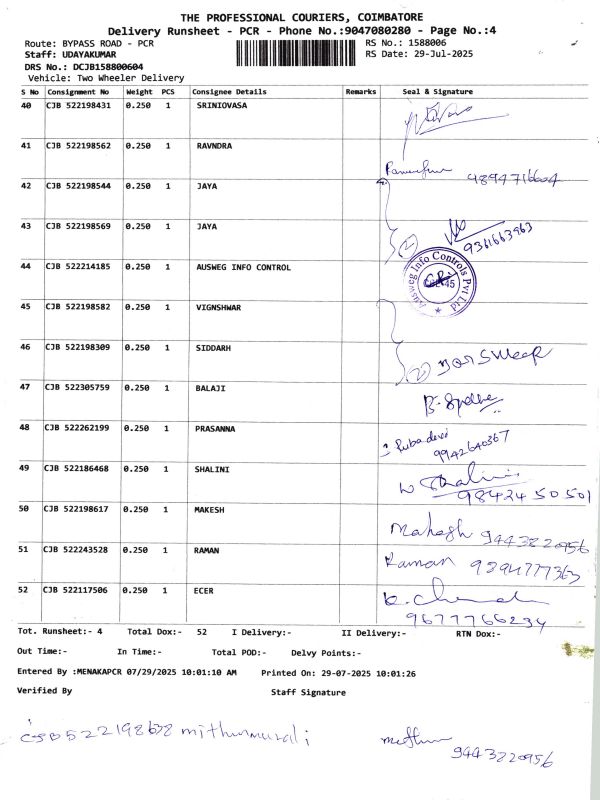 THE PROFESSIONAL COURIERS, COIMBATORE
Delivery Runsheet - PCR - Phone No.:9047080280 - Page No.:4
Route: BYPASS ROAD - PCR RS No.: 1588006
Staff: UDAYAKUMAR RS Date: 29-Jul-2025
DRS No.: DCJB158800604
Vehicle: Two Wheeler Delivery
S No Consignment No Weight PCS Consignee Details Remarks Seal & Signature
40 CJB 522198431 0.250 1 SRINIOVASA
41 CJB 522198562 0.250 1 RAVNDRA
4894716604
42 CJB 522198544 0.250 1 JAYA
43 CJB 522198569 0.250 1 JAYA
(2) 9361663963
44 CJB 522214185 0.250 1 AUSWEG INFO CONTROL
Ausweg Info Controls Pvt Ltd
45 CJB 522198582 0.250 1 VIGNSHWAR
46 CJB 522198309 0.250 1 SIDDARH
(2)
47 CJB 522305759 0.250 1 BALAJI
48 CJB 522262199 0.250 1 PRASANNA
9942640367
49 CJB 522186468 0.250 1 SHALINI
Shalini
9842450501
50 CJB 522198617 0.250 1 MAKESH
Mahesh 9443820956
51 CJB 522243528 0.250 1 RAMAN
Raman 9394777363
52 CJB 522117506 0.250 1 ECER
9677766234
Tot. Runsheet:- 4 Total Dox:- 52 I Delivery:- II Delivery:- RTN Dox:-
Out Time:- In Time:- Total POD:- Delvy Points:-
Entered By :MENAKAPCR 07/29/2025 10:01:10 AM Printed On: 29-07-2025 10:01:26
Verified By Staff Signature
mithunmurali
9443220956